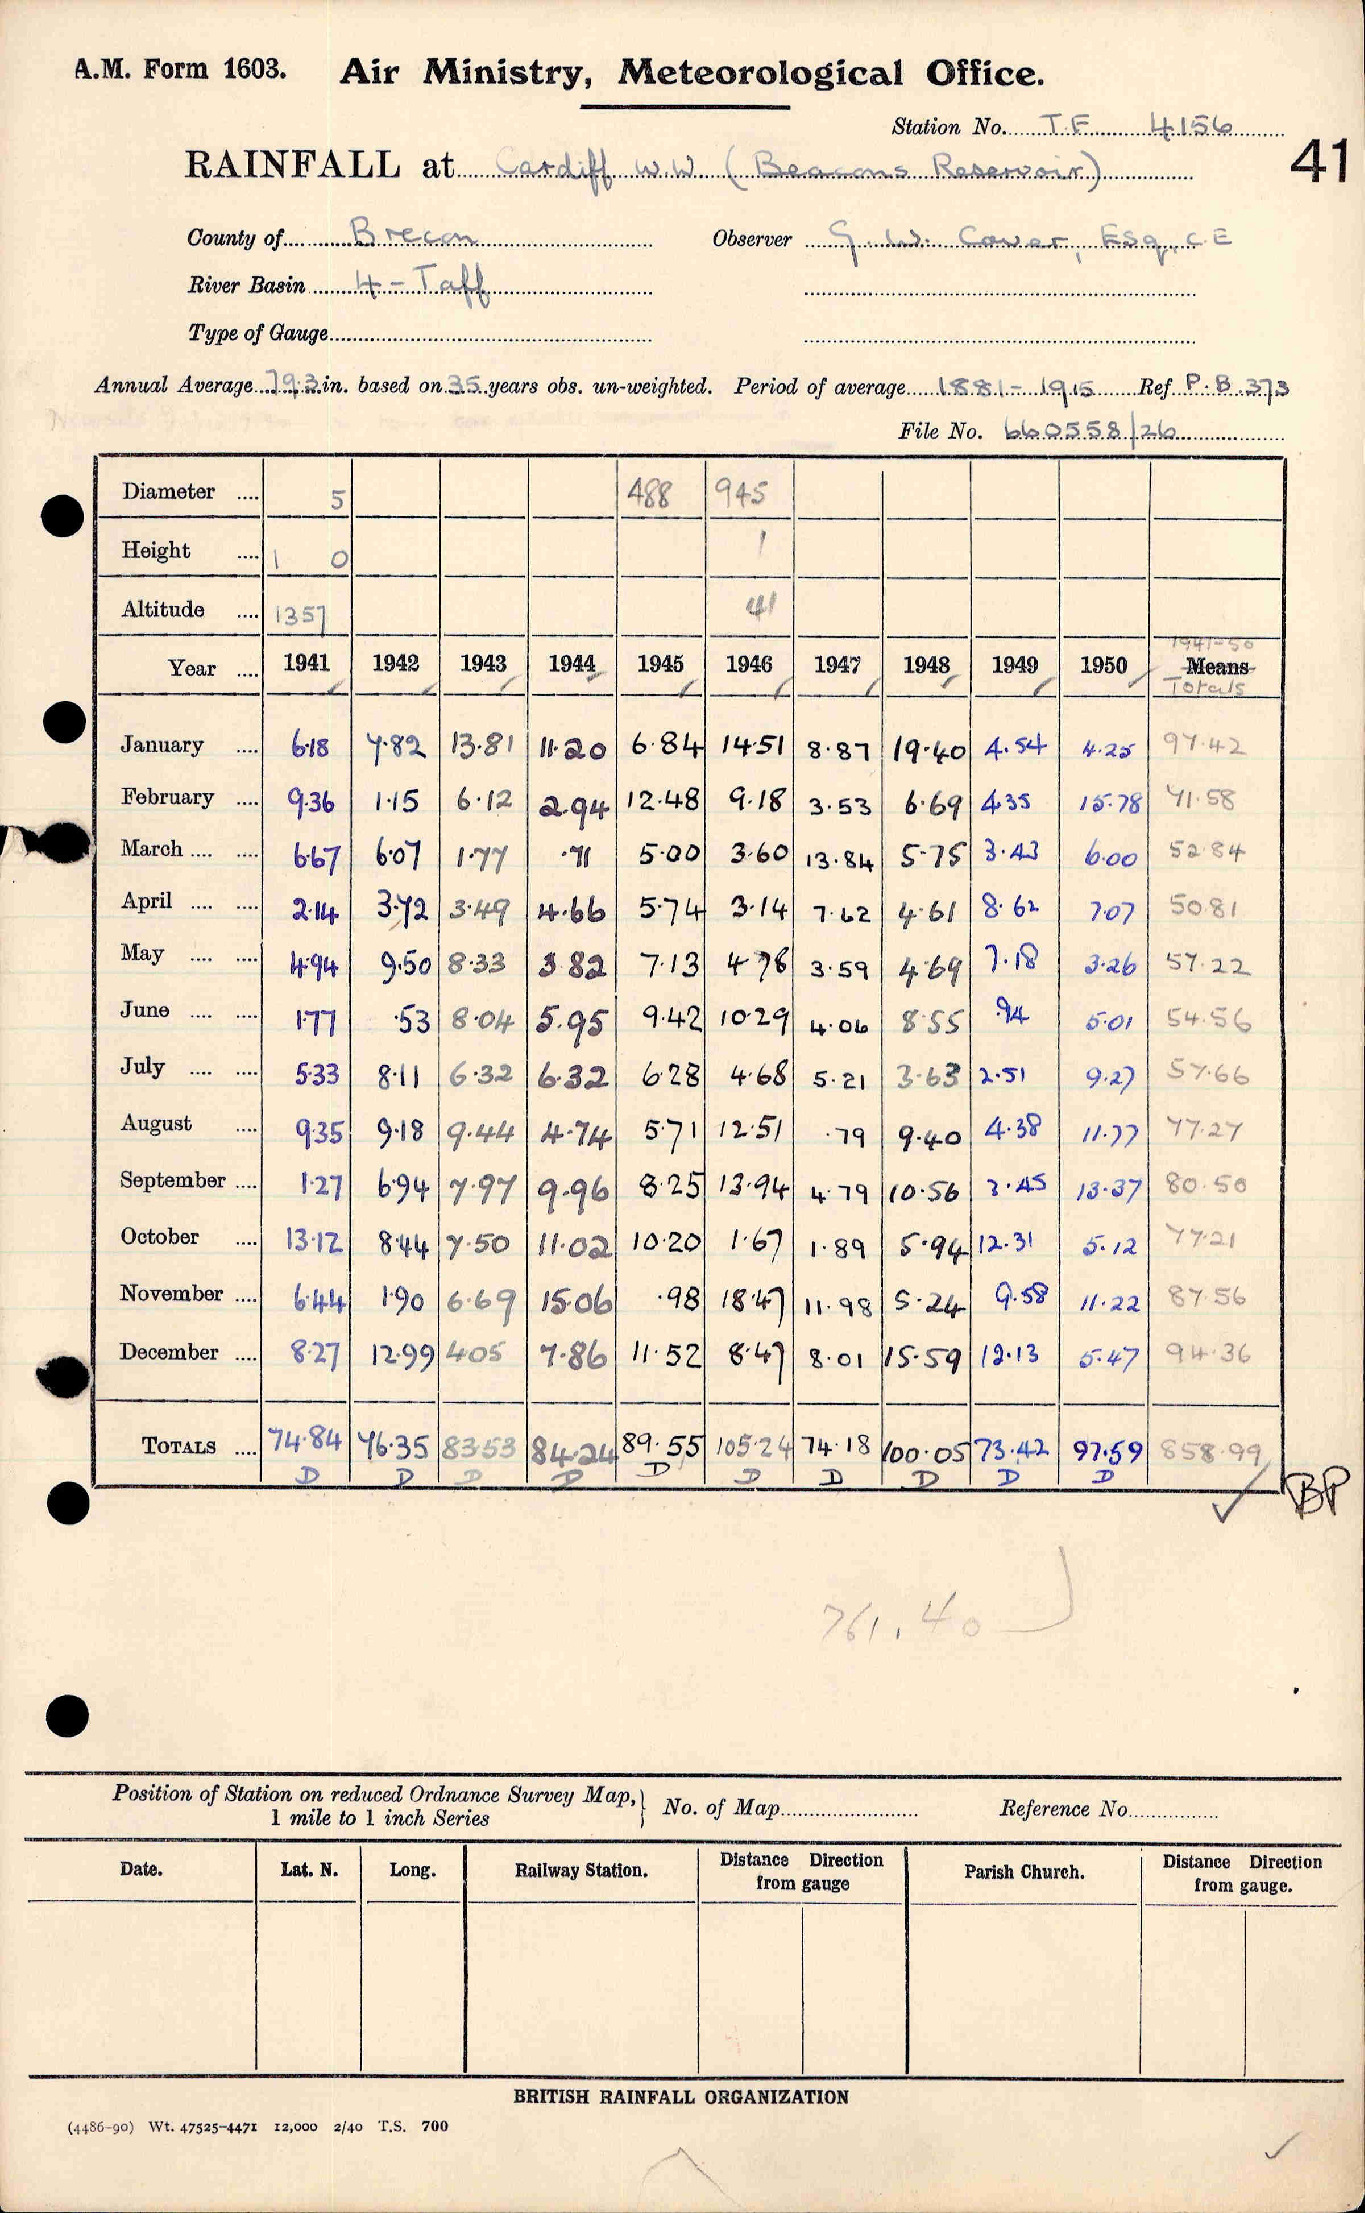 A.M. Form 1603. Air Ministry, Meteorological Office.
Station No. T.F 4156
41
RAINFALL at Cardiff W.W. (Beacons Reservoir)
County of Brecon Observer G. W. Cover, Esq., C E
River Basin 4 - Taff
Type of Gauge
Annual Average 79.3 in. based on 35 years obs. un-weighted. Period of average 1881 - 1915 Ref P.B. 373
File No. 660558/26
Diameter .... 5 488 945
Height .... 1 0 1
Altitude .... 1357 41
1941-50
Year .... 1941 1942 1943 1944 1945 1946 1947 1948 1949 1950 Means
Totals
January .... 6.18 7.82 13.81 11.20 6.84 14.51 8.87 19.40 4.54 4.25 97.42
February .... 9.36 1.15 6.12 2.94 12.48 9.18 3.53 6.69 4.35 15.78 71.58
March .... .... 6.67 6.07 1.77 .71 5.00 3.60 13.84 5.75 3.43 6.00 52.84
April .... .... 2.14 3.72 3.49 4.66 5.74 3.14 7.62 4.61 8.62 7.07 50.81
May .... .... 4.94 9.50 8.33 3.82 7.13 4.78 3.59 4.69 7.18 3.26 57.22
June .... .... 1.77 .53 8.04 5.95 9.42 10.29 4.06 8.55 .94 5.01 54.56
July .... .... 5.33 8.11 6.32 6.32 6.28 4.68 5.21 3.63 2.51 9.27 57.66
August .... 9.35 9.18 9.44 4.74 5.71 12.51 .79 9.40 4.38 11.77 77.27
September .... 1.27 6.94 7.97 9.96 8.25 13.94 4.79 10.56 3.45 13.37 80.50
October .... 13.12 8.44 7.50 11.02 10.20 1.67 1.89 5.94 12.31 5.12 77.21
November .... 6.44 1.90 6.69 15.06 .98 18.47 11.98 5.24 9.58 11.22 87.56
December .... 8.27 12.99 4.05 7.86 11.52 8.47 8.01 15.59 12.13 5.47 94.36
TOTALS .... 74.84 76.35 83.53 84.24 89.55 105.24 74.18 100.05 73.42 97.59 858.99
D D D D D D D D D D
BP
761.40
Position of Station on reduced Ordnance Survey Map, 1 mile to 1 inch Series } No. of Map Reference No.
Date. Lat. N. Long. Railway Station. Distance Direction from gauge Parish Church. Distance Direction from gauge.
BRITISH RAINFALL ORGANIZATION
(4486-90) Wt. 47525-4471 12,000 2/40 T.S. 700